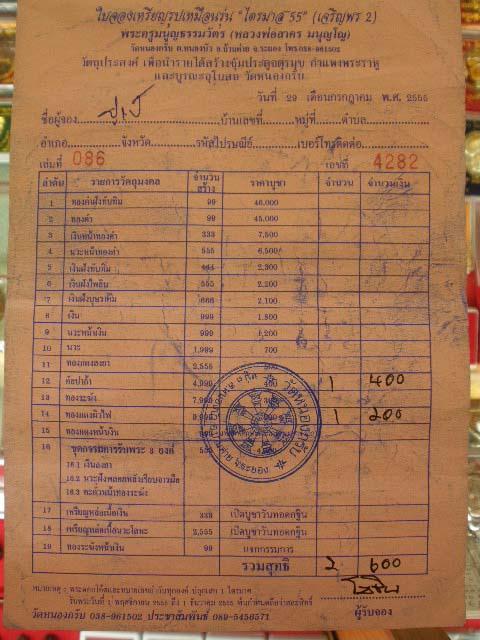 ใบจองเหรียญรูปเหมือนรุ่น "ไตรมาส 55" (เจริญพร 2)
พระครูมนูญธรรมวัตร (หลวงพ่อสาคร มนุญโญ)
วัดหนองกรับ ต.หนองบัว อ.บ้านค่าย จ.ระยอง โทร.038-961502
วัตถุประสงค์ เพื่อนำรายได้สร้างซุ้มประตูจตุรมุข กำแพงพระราหู
และบูรณะอุโบสถ วัดหนองกรับ
วันที่ 29 เดือนกรกฎาคม พ.ศ. 2555
ชื่อผู้จอง บ้านเลขที่ หมู่ที่ ตำบล
อำเภอ จังหวัด รหัสไปรษณีย์ เบอร์โทรติดต่อ
เล่มที่ 086 เลขที่ 4282
ลำดับ รายการวัตถุมงคล จำนวนสร้าง ราคาบูชา จำนวน จำนวนเงิน
1 ทองคำฝังทับทิม 99 46,000
2 ทองคำ 99 45,000
3 เงินหน้าทองคำ 333 7,500
4 นวะหน้าทองคำ 555 6,500
5 เงินฝังทับทิม 444 2,300
6 เงินฝังไพลิน 555 2,200
7 เงินฝังบุษราคัม 666 2,100
8 เงิน 999 1,800
9 นวะหน้าเงิน 999 1,200
10 นวะ 1,999 700
11 ทองแดงลงยา 2,555 500
12 อัลปาก้า 4,999 400 1 400
13 ทองระฆัง 7,999
14 ทองแดงผิวไฟ 1 200
15 ทองแดงหน้าเงิน
16 ชุดกรรมการรับพระ 3 องค์ 555
16.1 เงินลงยา
16.2 นวะฝังพลอยหลังเรียบจารมือ
16.3 ตะกั่วหน้าทองระฆัง
17 เหรียญหล่อเนื้อเงิน 333 เปิดบูชาวันทอดกฐิน
18 เหรียญหล่อเนื้อนวะโลหะ 2,555 เปิดบูชาวันทอดกฐิน
19 ทองระฆังหน้าเงิน 99 แจกกรรมการ
รวมสุทธิ 2 600
หมายเหตุ : พระตอกโค้ดและหมายเลขกำกับทุกองค์ ปลุกเสก 1 ไตรมาส
รับพระวันที่ 1 พฤศจิกายน 2555 ถึง 1 ธันวาคม 2555 พ้นกำหนดถือว่าสละสิทธิ์
วัดหนองกรับ 038-961502 ประชาสัมพันธ์ 089-5456571 ผู้รับจอง